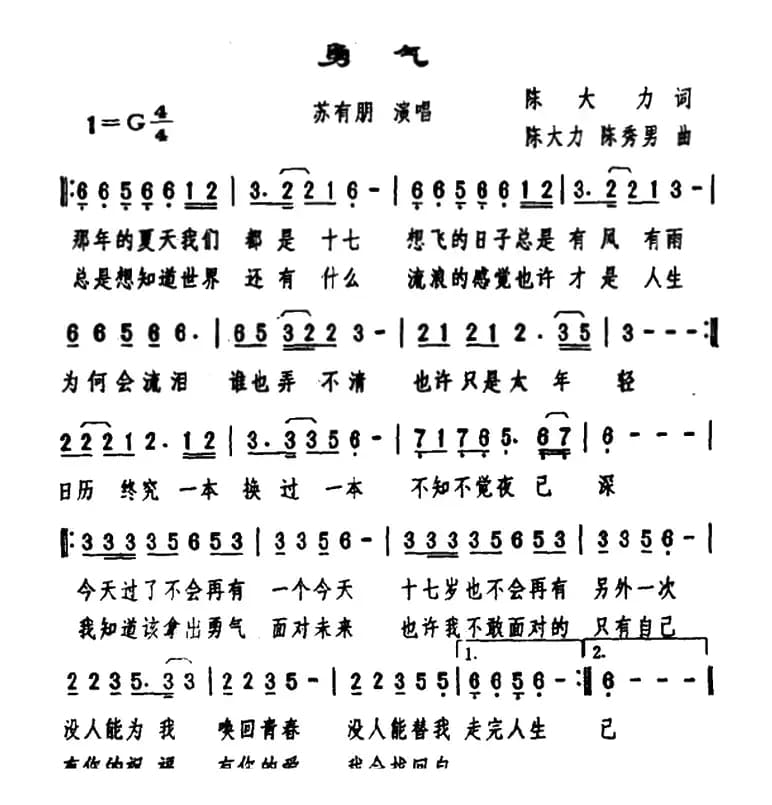 勇气
1=G 4/4
苏有朋 演唱
陈大力 词
陈大力 陈秀男 曲
‖: 6 6 5 6 6 1 2 | 3. 2 2 1 6 - | 6 6 5 6 6 1 2 | 3. 2 2 1 3 - |
那年的夏天我们 都是十七 想飞的日子总是有风有雨
总是想知道世界 还有什么 流浪的感觉也许才是人生
6 6 5 6 6. | 6 5 3 2 2 3 - | 2 1 2 1 2. 3 5 | 3 - - - :‖
为何会流泪 谁也弄不清 也许只是太年轻
2 2 2 1 2. 1 2 | 3. 3 3 5 6 - | 7 1 7 6 5. 6 7 | 6 - - - |
日历终究一本换过一本 不知不觉夜已深
‖: 3 3 3 3 5 6 5 3 | 3 3 5 6 - | 3 3 3 3 5 6 5 3 | 3 3 5 6 - |
今天过了不会再有 一个今天 十七岁也不会再有 另外一次
我知道该拿出勇气 面对未来 也许我不敢面对的 只有自己
1. 2.
2 2 3 5. 3 3 | 2 2 3 5 - | 2 2 3 5 5 | 6 6 5 6 - :‖ 6 - - |
没人能为我 唤回青春 没人能替我 走完人生 己